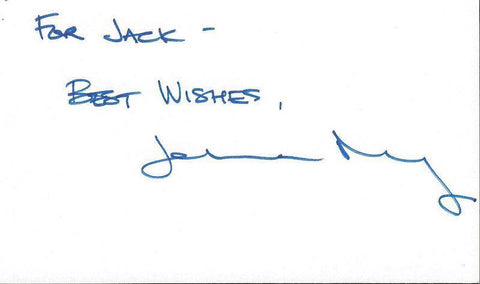 FOR JACK -
BEST WISHES,